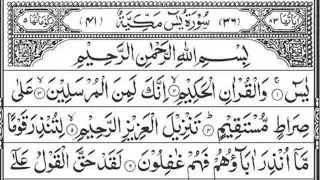 سُوْرَةُ يٰسٓ مَكِّيَّةٌ (٣٦) (٤١)
بِسْمِ اللهِ الرَّحْمٰنِ الرَّحِيْمِ
يٰسٓ ۚ وَالْقُرْاٰنِ الْحَكِيْمِ ۙ اِنَّكَ لَمِنَ الْمُرْسَلِيْنَ ۙ عَلٰى
صِرَاطٍ مُّسْتَقِيْمٍ ؕ تَنْزِيْلَ الْعَزِيْزِ الرَّحِيْمِ ۙ لِتُنْذِرَ قَوْمًا
مَّاۤ اُنْذِرَ اٰبَآؤُهُمْ فَهُمْ غٰفِلُوْنَ لَقَدْ حَقَّ الْقَوْلُ عَلٰٓى